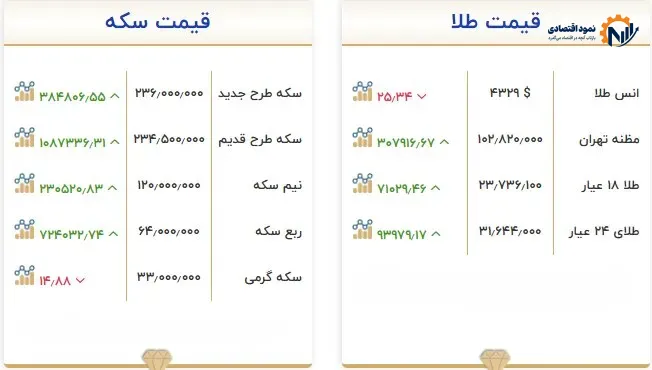 قیمت طلا
نمود اقتصادی
بازتاب آنچه در اقتصاد می‌گذرد
انس طلا ۴۳۲۹ $ ۲۵٫۳۴
مظنه تهران ۱۰۲٫۸۲۰٫۰۰۰ ۳۰۷۹۱۶٫۶۷
طلا ۱۸ عیار ۲۳٫۷۳۶٫۱۰۰ ۷۱۰۲۹٫۴۶
طلای ۲۴ عیار ۳۱٫۶۴۴٫۰۰۰ ۹۳۹۷۹٫۱۷
قیمت سکه
سکه طرح جدید ۲۳۶٫۰۰۰٫۰۰۰ ۳۸۴۸۰۶٫۵۵
سکه طرح قدیم ۲۳۴٫۵۰۰٫۰۰۰ ۱۰۸۷۳۳۶٫۳۱
نیم سکه ۱۲۰٫۰۰۰٫۰۰۰ ۲۳۰۵۲۰٫۸۳
ربع سکه ۶۴٫۰۰۰٫۰۰۰ ۷۲۴۰۳۲٫۷۴
سکه گرمی ۳۳٫۰۰۰٫۰۰۰ ۱۴٫۸۸